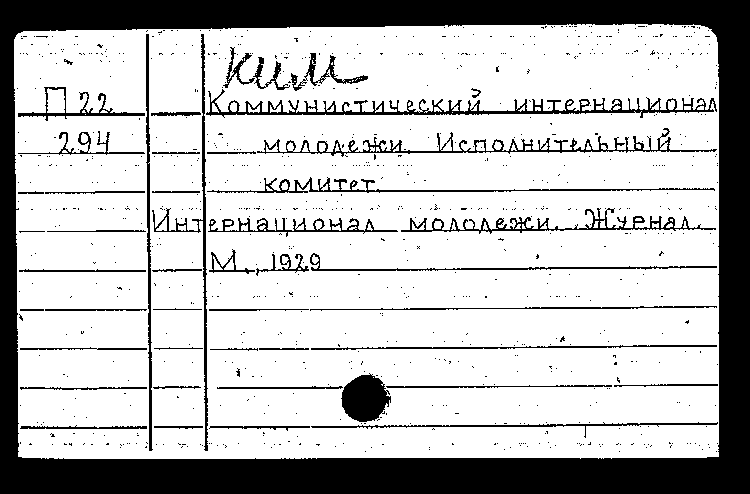 ким
П 22 Коммунистический интернационал
294 молодежи. Исполнительный
комитет.
Интернационал молодежи. Журнал.
М., 1929